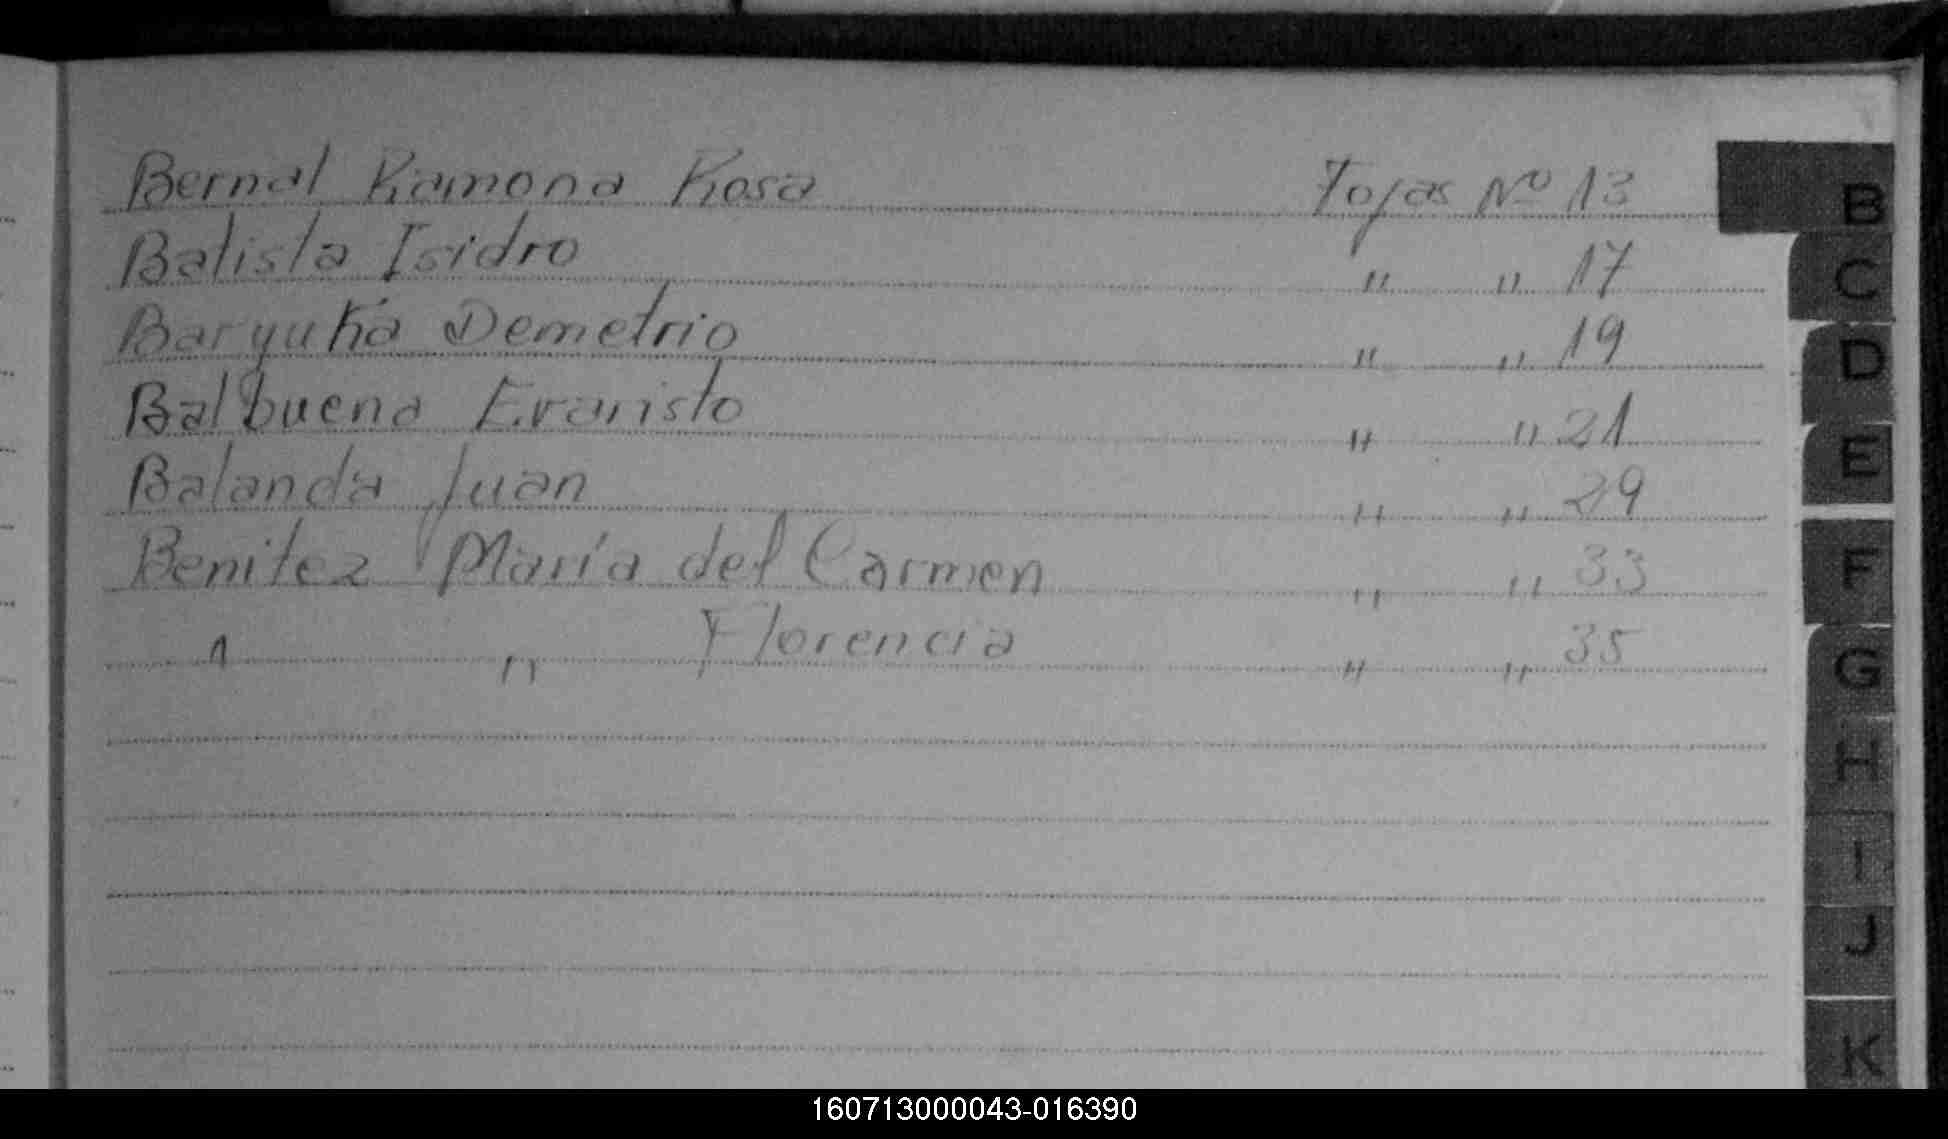 Bernal Ramona Rosa Fojas Nº 13
Batista Isidro " " 17
Baryuka Demetrio " " 19
Balbuena Evaristo " " 21
Balanda Juan " " 29
Benitez María del Carmen " " 33
" " Florencia " " 35
B
C
D
E
F
G
H
I
J
K
160713000043-016390